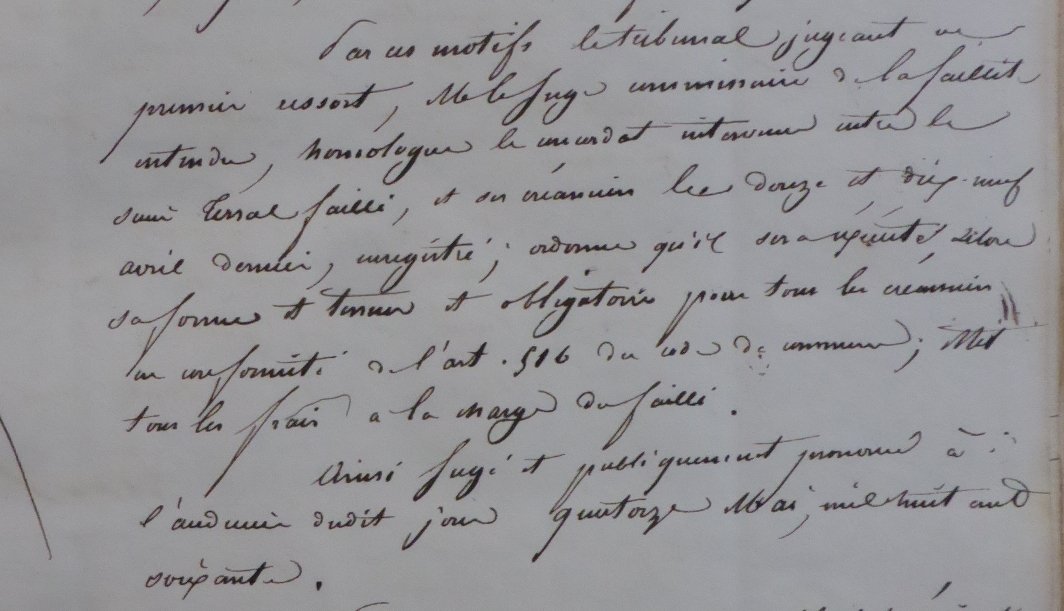 Par ces motifs le tribunal jugeant en
premier ressort, Mr le Juge commissaire de la faillite
entendu, homologue le concordat intervenu entre le
sieur Terral failli, et ses créanciers les douze et dix-neuf
avril dernier, enregistré; ordonne qu'il sera exécuté selon
sa forme et teneur et obligatoire pour tous les créanciers
en conformité de l'art. 516 du code de commerce; Met
tous les frais a la charge du failli.
Ainsi Jugé et publiquement prononcé à
l'audience dudit jour quatorze Mai, mil huit cent
soixante.